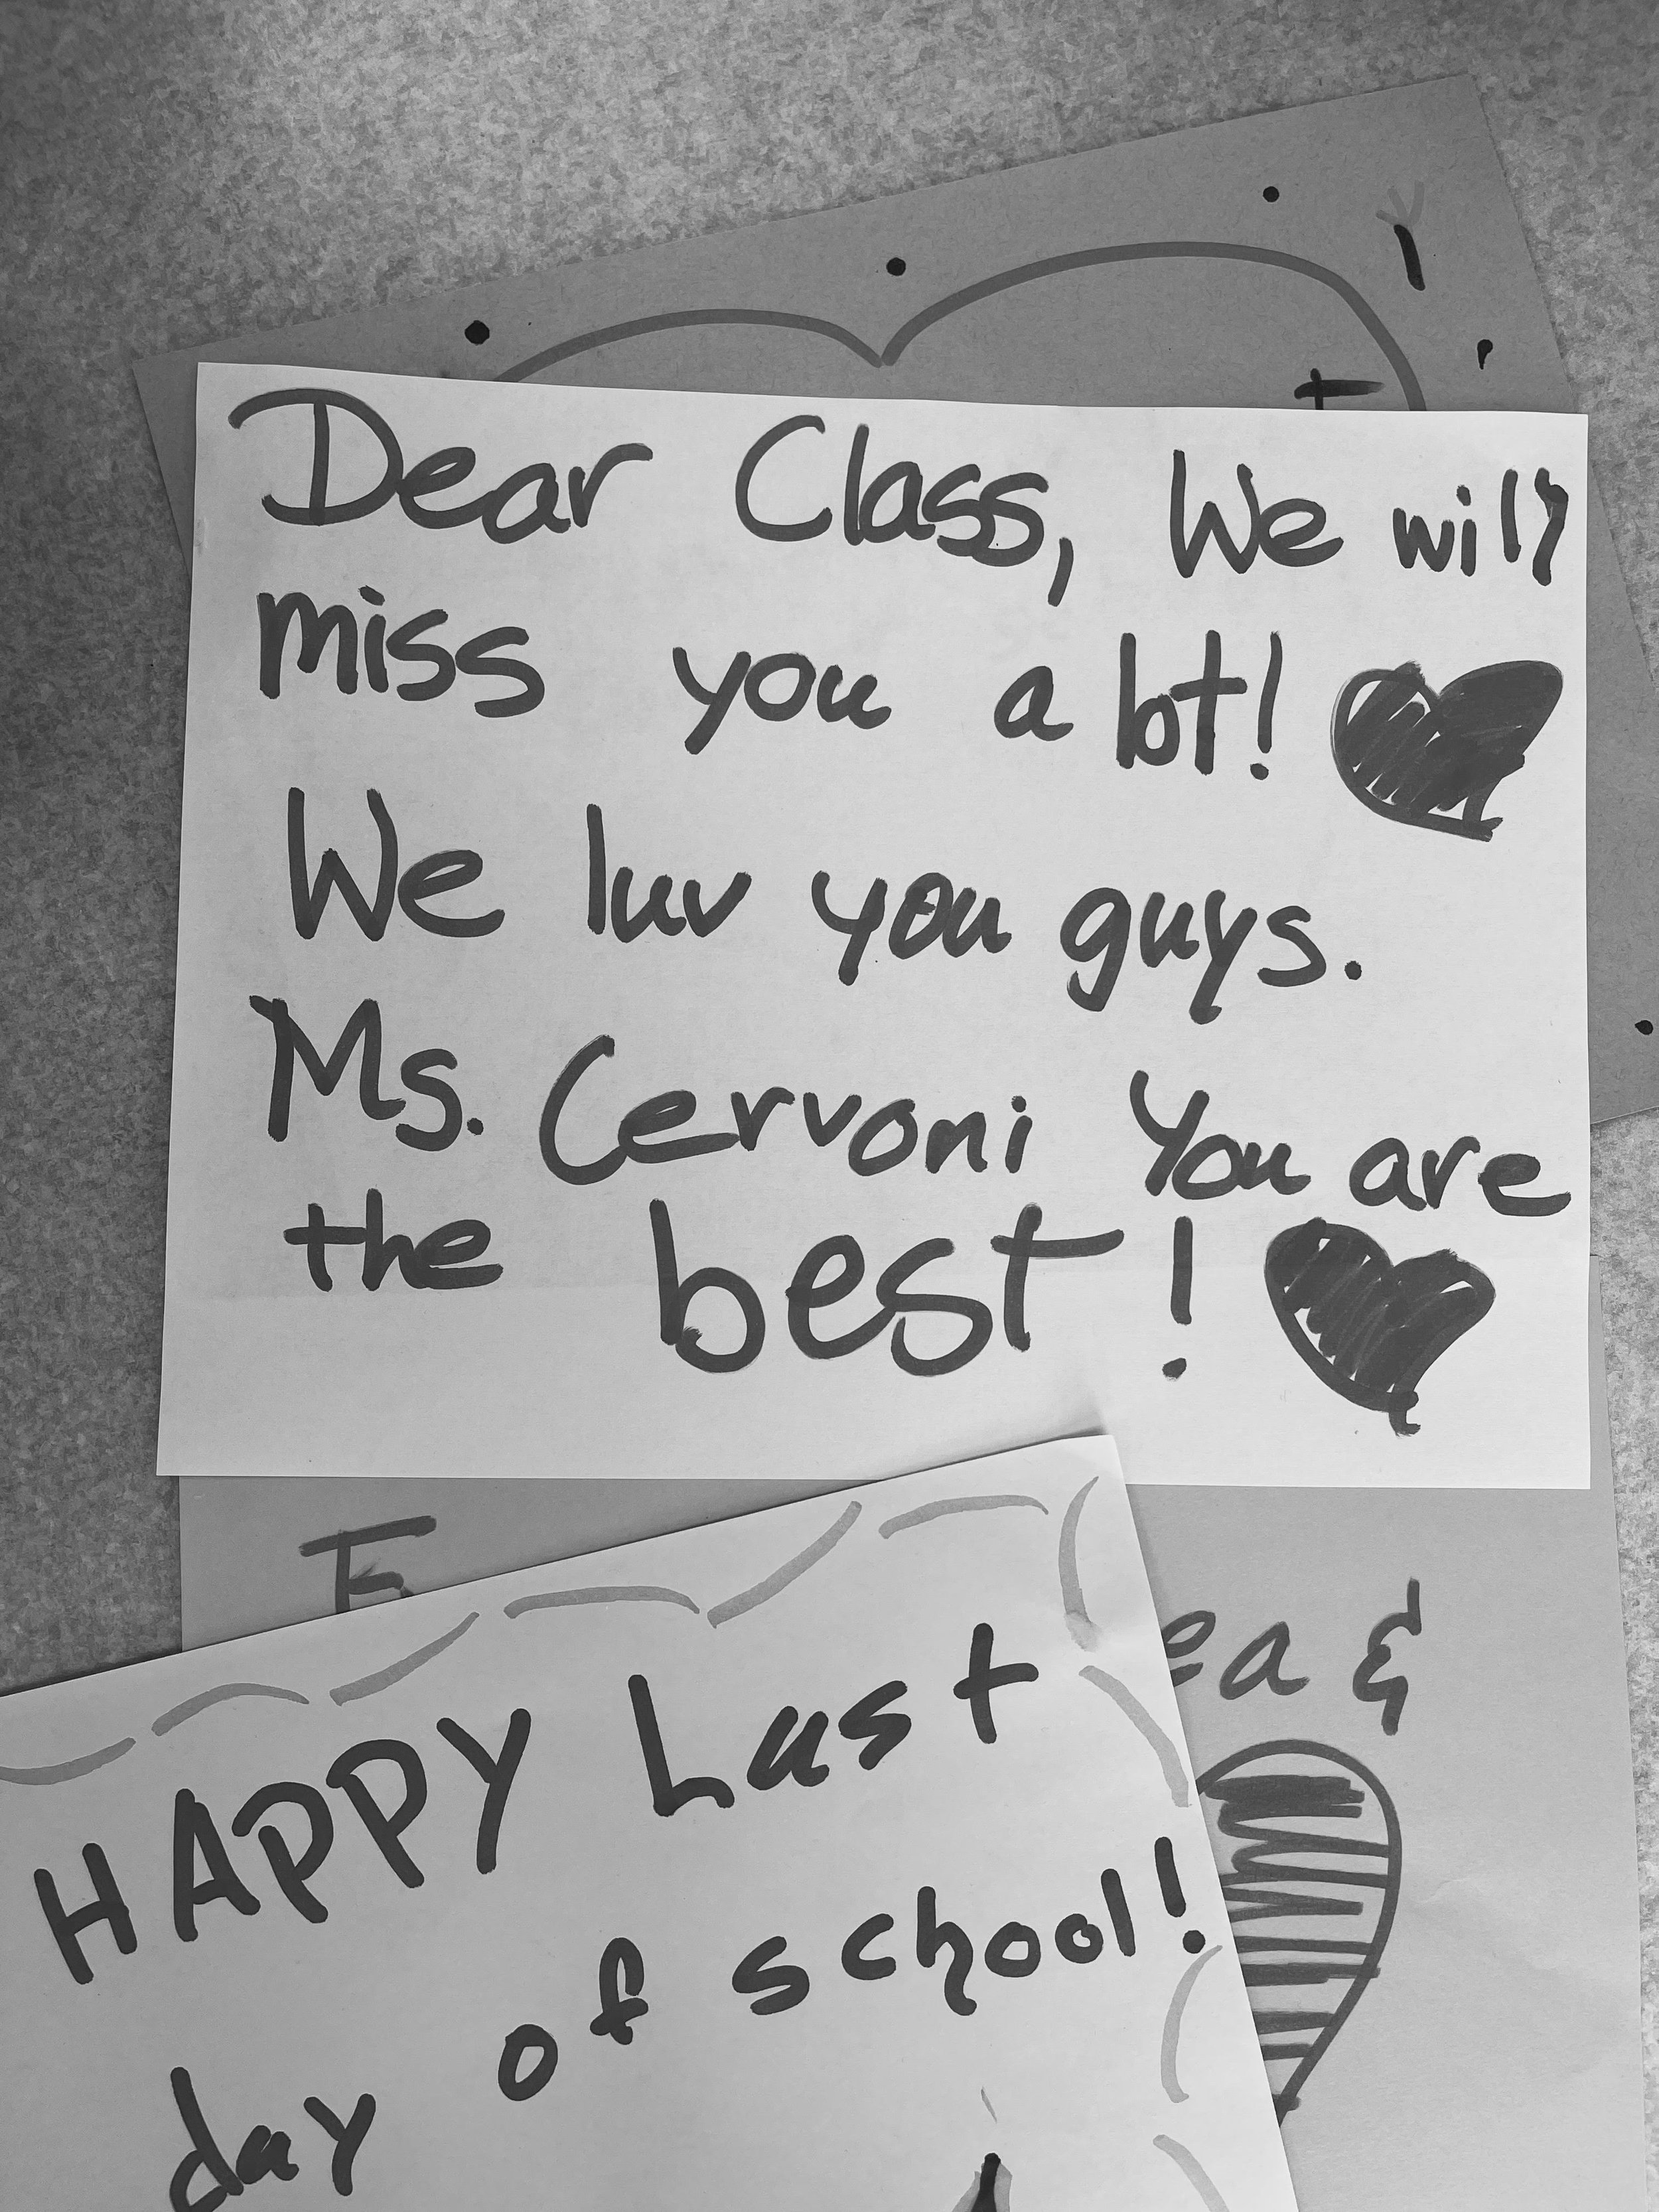 Dear Class, We will
miss you a lot!
We luv you guys.
Ms. Cervoni You are
the best!
ea &
HAPPY Last
day of school!